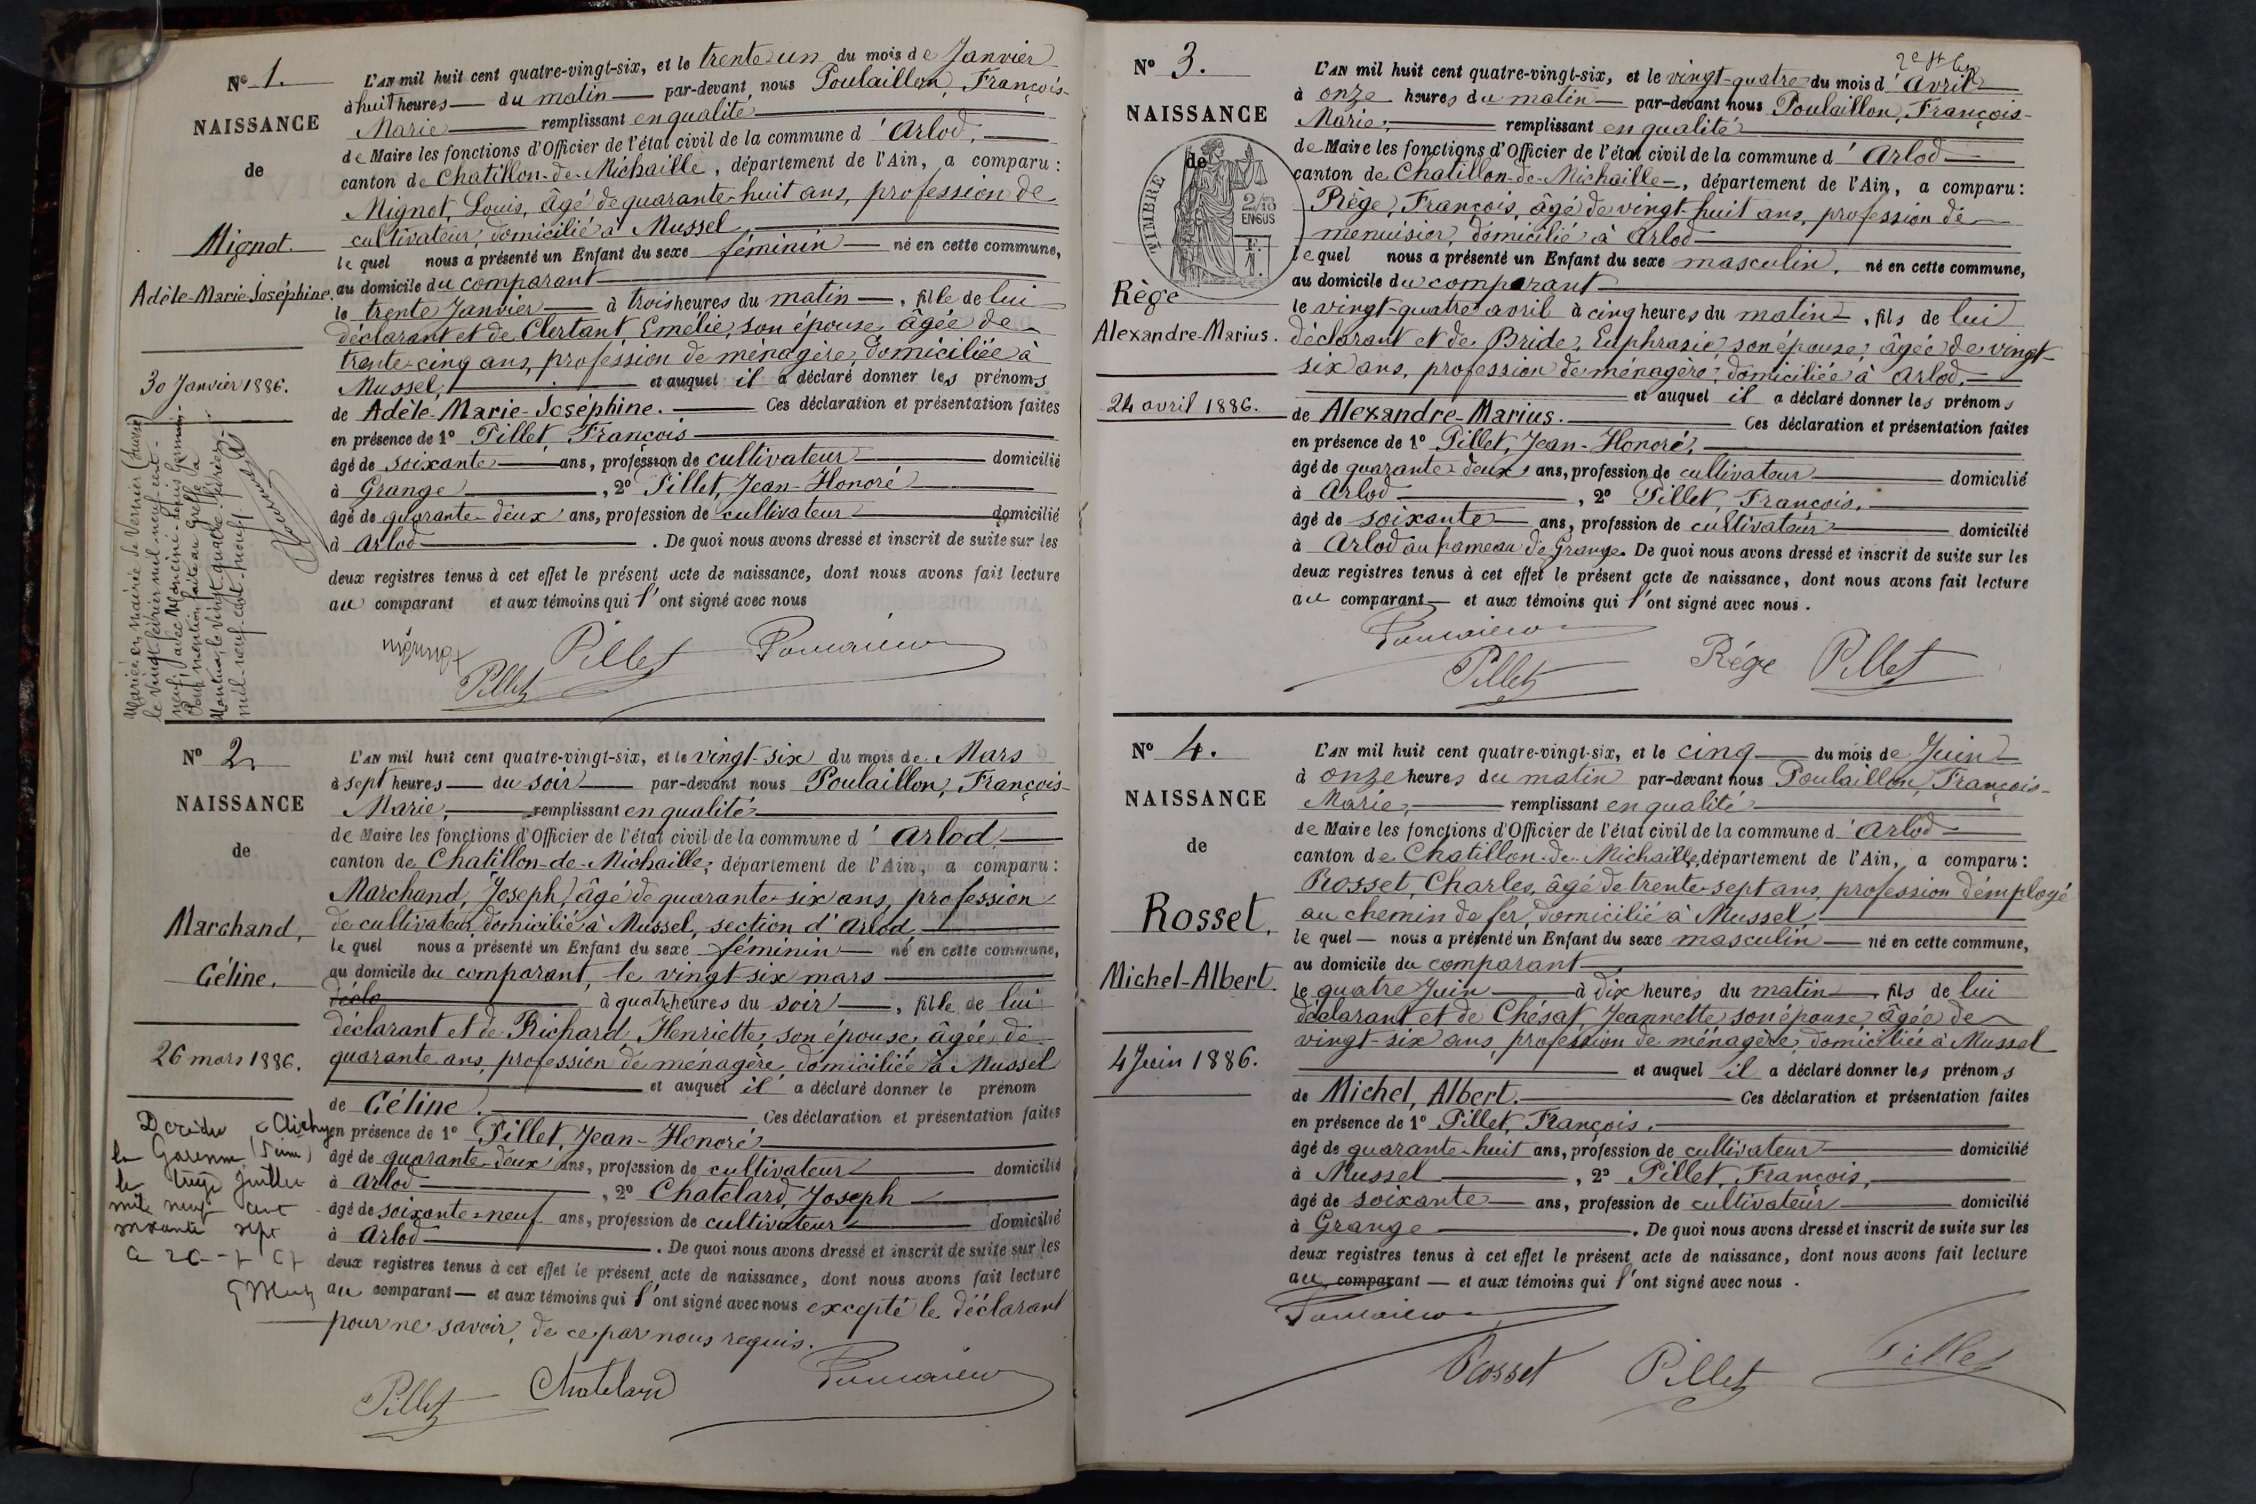 Nº 1.
NAISSANCE
de
Mignot
Adèle-Marie-Joséphine.
30 Janvier 1886.
Mariée en mairie de Vernier
le vingt février mil neuf cent
neuf, avec Moncini
Pour mention faite au Greffe
Nantua, le vingt quatre février
mil neuf cent neuf.
L'AN mil huit cent quatre-vingt-six, et le trente un du mois de Janvier
à huit heures du matin par-devant nous Poulaillon, François-
Marie remplissant en qualité
de Maire les fonctions d'Officier de l'état civil de la commune d'Arlod,
canton de Chatillon-de-Michaille, département de l'Ain, a comparu:
Mignot, Louis, âgé de quarante-huit ans, profession de
cultivateur, domicilié à Mussel
le quel nous a présenté un Enfant du sexe féminin né en cette commune,
au domicile du comparant
le trente Janvier à trois heures du matin, fille de lui
déclarant et de Clertant Emélie, son épouse, âgée de
trente-cinq ans, profession de ménagère, domiciliée à
Mussel, et auquel il a déclaré donner les prénoms
de Adèle-Marie-Joséphine. Ces déclaration et présentation faites
en présence de 1º Pillet François
âgé de soixante ans, profession de cultivateur domicilié
à Grange, 2º Pillet, Jean-Honoré
âgé de quarante-deux ans, profession de cultivateur domicilié
à Arlod. De quoi nous avons dressé et inscrit de suite sur les
deux registres tenus à cet effet le présent acte de naissance, dont nous avons fait lecture
au comparant et aux témoins qui l'ont signé avec nous
mignot Pillet Pillet Poulaillon
Nº 2.
NAISSANCE
de
Marchand,
Céline.
26 mars 1886.
Décédée à Clichy
la Garenne (Seine)
le treize juillet
mille neuf cent
soixante sept
L'AN mil huit cent quatre-vingt-six, et le vingt-six du mois de Mars
à sept heures du soir par-devant nous Poulaillon, François-
Marie, remplissant en qualité
de Maire les fonctions d'Officier de l'état civil de la commune d'Arlod
canton de Chatillon-de-Michaille, département de l'Ain, a comparu:
Marchand, Joseph, âgé de quarante-six ans, profession
de cultivateur, domicilié à Mussel, section d'Arlod
le quel nous a présenté un Enfant du sexe féminin né en cette commune,
au domicile du comparant, le vingt-six mars
décla à quatre heures du soir, fille de lui
déclarant et de Richard Henriette, son épouse, âgée de
quarante ans, profession de ménagère, domiciliée à Mussel
et auquel il a déclaré donner le prénom
de Céline. Ces déclaration et présentation faites
en présence de 1º Pillet, Jean-Honoré
âgé de quarante-deux ans, profession de cultivateur domicilié
à Arlod, 2º Chatelard, Joseph
âgé de soixante-neuf ans, profession de cultivateur domicilié
à Arlod. De quoi nous avons dressé et inscrit de suite sur les
deux registres tenus à cet effet le présent acte de naissance, dont nous avons fait lecture
au comparant et aux témoins qui l'ont signé avec nous excepté le déclarant
pour ne savoir, de ce par nous requis.
Pillet Chatelard Poulaillon
Nº 3.
NAISSANCE
de
TIMBRE
2/10 EN SUS
Rège
Alexandre-Marius.
24 avril 1886.
L'AN mil huit cent quatre-vingt-six, et le vingt-quatre du mois d'avril
à onze heures du matin par-devant nous Poulaillon, François-
Marie, remplissant en qualité
de Maire les fonctions d'Officier de l'état civil de la commune d'Arlod
canton de Chatillon-de-Michaille, département de l'Ain, a comparu:
Rège, François, âgé de vingt-huit ans, profession de
menuisier, domicilié à Arlod
le quel nous a présenté un Enfant du sexe masculin, né en cette commune,
au domicile du comparant
le vingt-quatre avril à cinq heures du matin, fils de lui
déclarant et de Bride, Euphrasie, son épouse, âgée de vingt-
six ans, profession de ménagère, domiciliée à Arlod,
et auquel il a déclaré donner les prénoms
de Alexandre-Marius. Ces déclaration et présentation faites
en présence de 1º Pillet, Jean-Honoré,
âgé de quarante-deux ans, profession de cultivateur domicilié
à Arlod, 2º Pillet, François,
âgé de soixante ans, profession de cultivateur domicilié
à Arlod au hameau de Grange. De quoi nous avons dressé et inscrit de suite sur les
deux registres tenus à cet effet le présent acte de naissance, dont nous avons fait lecture
au comparant et aux témoins qui l'ont signé avec nous.
Poulaillon Pillet Rège Pillet
Nº 4.
NAISSANCE
de
Rosset,
Michel-Albert.
4 Juin 1886.
L'AN mil huit cent quatre-vingt-six, et le cinq du mois de Juin
à onze heures du matin par-devant nous Poulaillon, François-
Marie, remplissant en qualité
de Maire les fonctions d'Officier de l'état civil de la commune d'Arlod
canton de Chatillon-de-Michaille, département de l'Ain, a comparu:
Rosset, Charles, âgé de trente-sept ans, profession d'employé
au chemin de fer, domicilié à Mussel,
le quel nous a présenté un Enfant du sexe masculin né en cette commune,
au domicile du comparant
le quatre Juin à dix heures du matin, fils de lui
déclarant et de Chésat, Jeannette son épouse âgée de
vingt-six ans, profession de ménagère, domiciliée à Mussel
et auquel il a déclaré donner les prénoms
de Michel, Albert. Ces déclaration et présentation faites
en présence de 1º Pillet, François.
âgé de quarante-huit ans, profession de cultivateur domicilié
à Mussel, 2º Pillet, François,
âgé de soixante ans, profession de cultivateur domicilié
à Grange. De quoi nous avons dressé et inscrit de suite sur les
deux registres tenus à cet effet le présent acte de naissance, dont nous avons fait lecture
au comparant et aux témoins qui l'ont signé avec nous.
Poulaillon Rosset Pillet Pillet